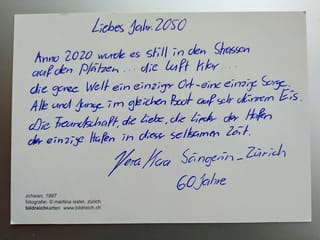 Liebes Jahr 2050
Anno 2020 wurde es still in den Strassen
auf den Plätzen... die Luft klar...
die ganze Welt ein einziger Ort - eine einzige Sorge.
Alte und Junge im gleichen Boot auf sehr dünnem Eis.
Die Freundschaft, die Liebe, die Lieder der Hafen
der einzige Hafen in dieser seltsamen Zeit.
Vera Sängerin - Zürich
60 Jahre
schwan, 1997
fotografie: © martina issler, zürich
bildreichkarten www.bildreich.ch